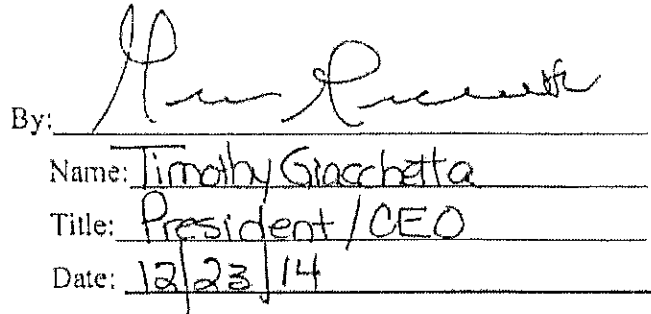 By:
Name: Timothy Giacchetta
Title: President / CEO
Date: 12/23/14